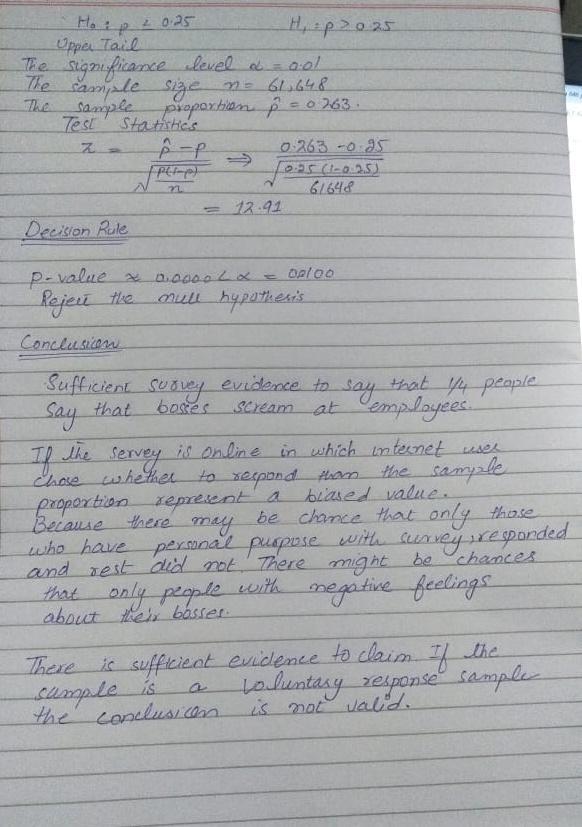 H₀ : p ≤ 0.25 H₁ : p > 0.25
Upper Tail
The significance level α = 0.01
The sample size n = 61,648
The sample proportion p̂ = 0.263.
Test Statistics
z = (p̂ - p) / √(p(1-p)/n) ⇒ (0.263 - 0.25) / √(0.25(1-0.25)/61648)
= 12.91
Decision Rule
p-value ≈ 0.0000 < α = 0.0100
Reject the null hypothesis
Conclusion
Sufficient survey evidence to say that 1/4 people
say that bosses scream at employees.
If the servey is online in which internet user
chose whether to respond than the sample
proportion represent a biased value.
Because there may be chance that only those
who have personal purpose with survey, responded
and rest did not. There might be chances
that only people with negative feelings
about their bosses.
There is sufficient evidence to claim. If the
sample is a voluntary response sample
the conclusion is not valid.